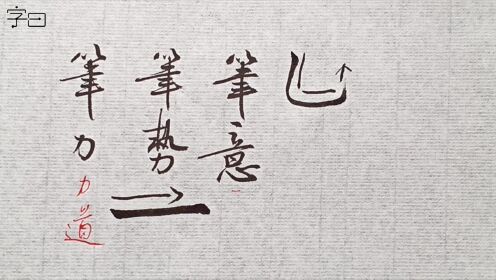 字曰
筆力
力道
筆势
筆意